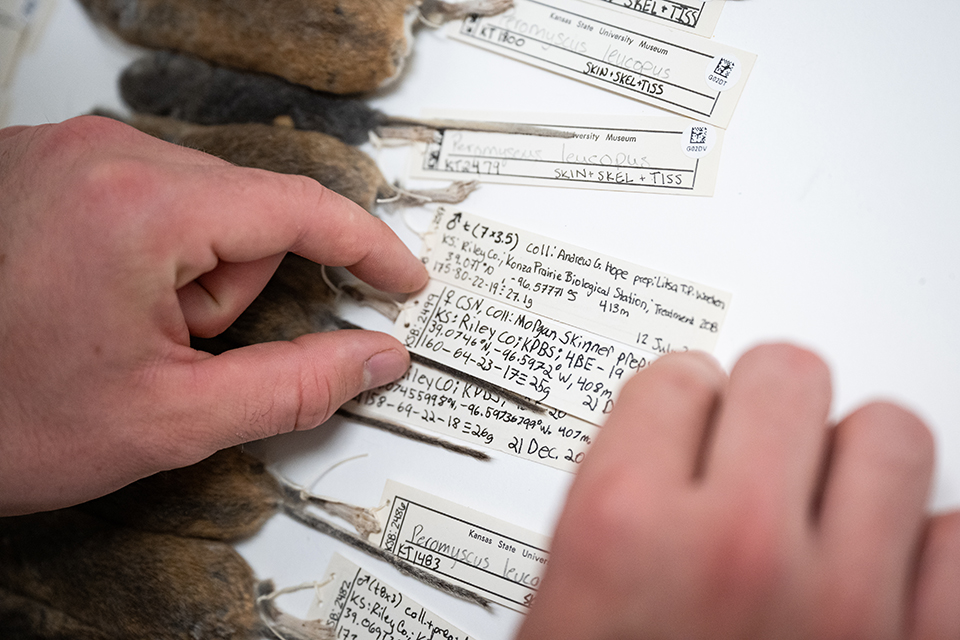 SKEL+TISS
Kansas State University Museum
Peromyscus leucopus
KT1800
SKIN+SKEL+TISS
G02DT
versity Museum
Peromyscus leucopus
KT2479
SKIN+SKEL+TISS
G02DV
♂ t(7x3.5) coll: Andrew G. Hope prep: Litsa T.P.
KS: Riley Co.; Konza Prairie Biological Station; Treatment 20B
39.071°N, -96.57771 413m
175-80-22-19≡27.1g
12 July
OB:2499
♀ CSN, coll: Morgan Skinner prep
KS: Riley CO; KPBS; 4BE-19
39.0746°N, -96.5972°W, 408m
160-64-23-17≡25g
21 D
iley CO; KPBS, 20
07455998°N, -96.59736799°W, 407m
158-69-22-18≡26g 21 Dec. 20
OB:2486
Kansas State Univers
Peromyscus leuco
KT1483
OB:2482
♂ (t8x3) coll+prep
KS: Riley Co
39.0691
177